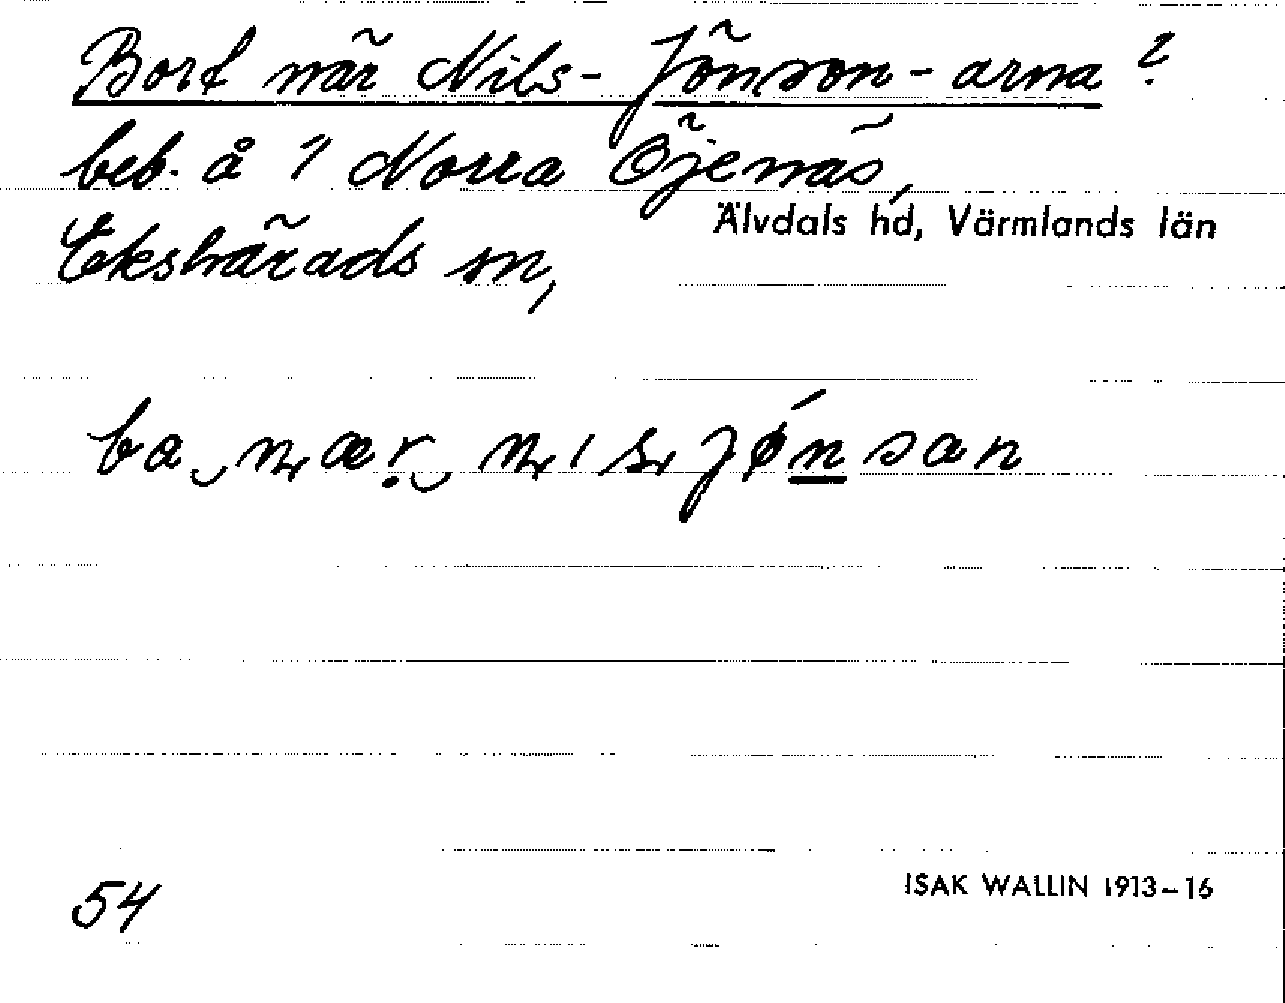 Bort när Nils-Jönson-arna?
beb. å 1 Norra Öjenäs,
Älvdals hd, Värmlands län
Ekshärads sn,
ba nær nis jønsan
54
ISAK WALLIN 1913-16